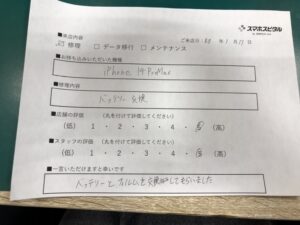 スマホスピタル
■来店内容
ご来店日
☑ 修理 □ データ移行 □ メンテナンス
■お持ち込みいただいた機種
iPhone 14 ProMax
■修理内容
バッテリー交換
■店舗の評価 (丸を付けて評価してください)
(低) 1 ・ 2 ・ 3 ・ 4 ・ 5 (高)
■スタッフの評価 (丸を付けて評価してください)
(低) 1 ・ 2 ・ 3 ・ 4 ・ 5 (高)
■一言いただけますと幸いです
バッテリーとフィルムを交換してもらいました